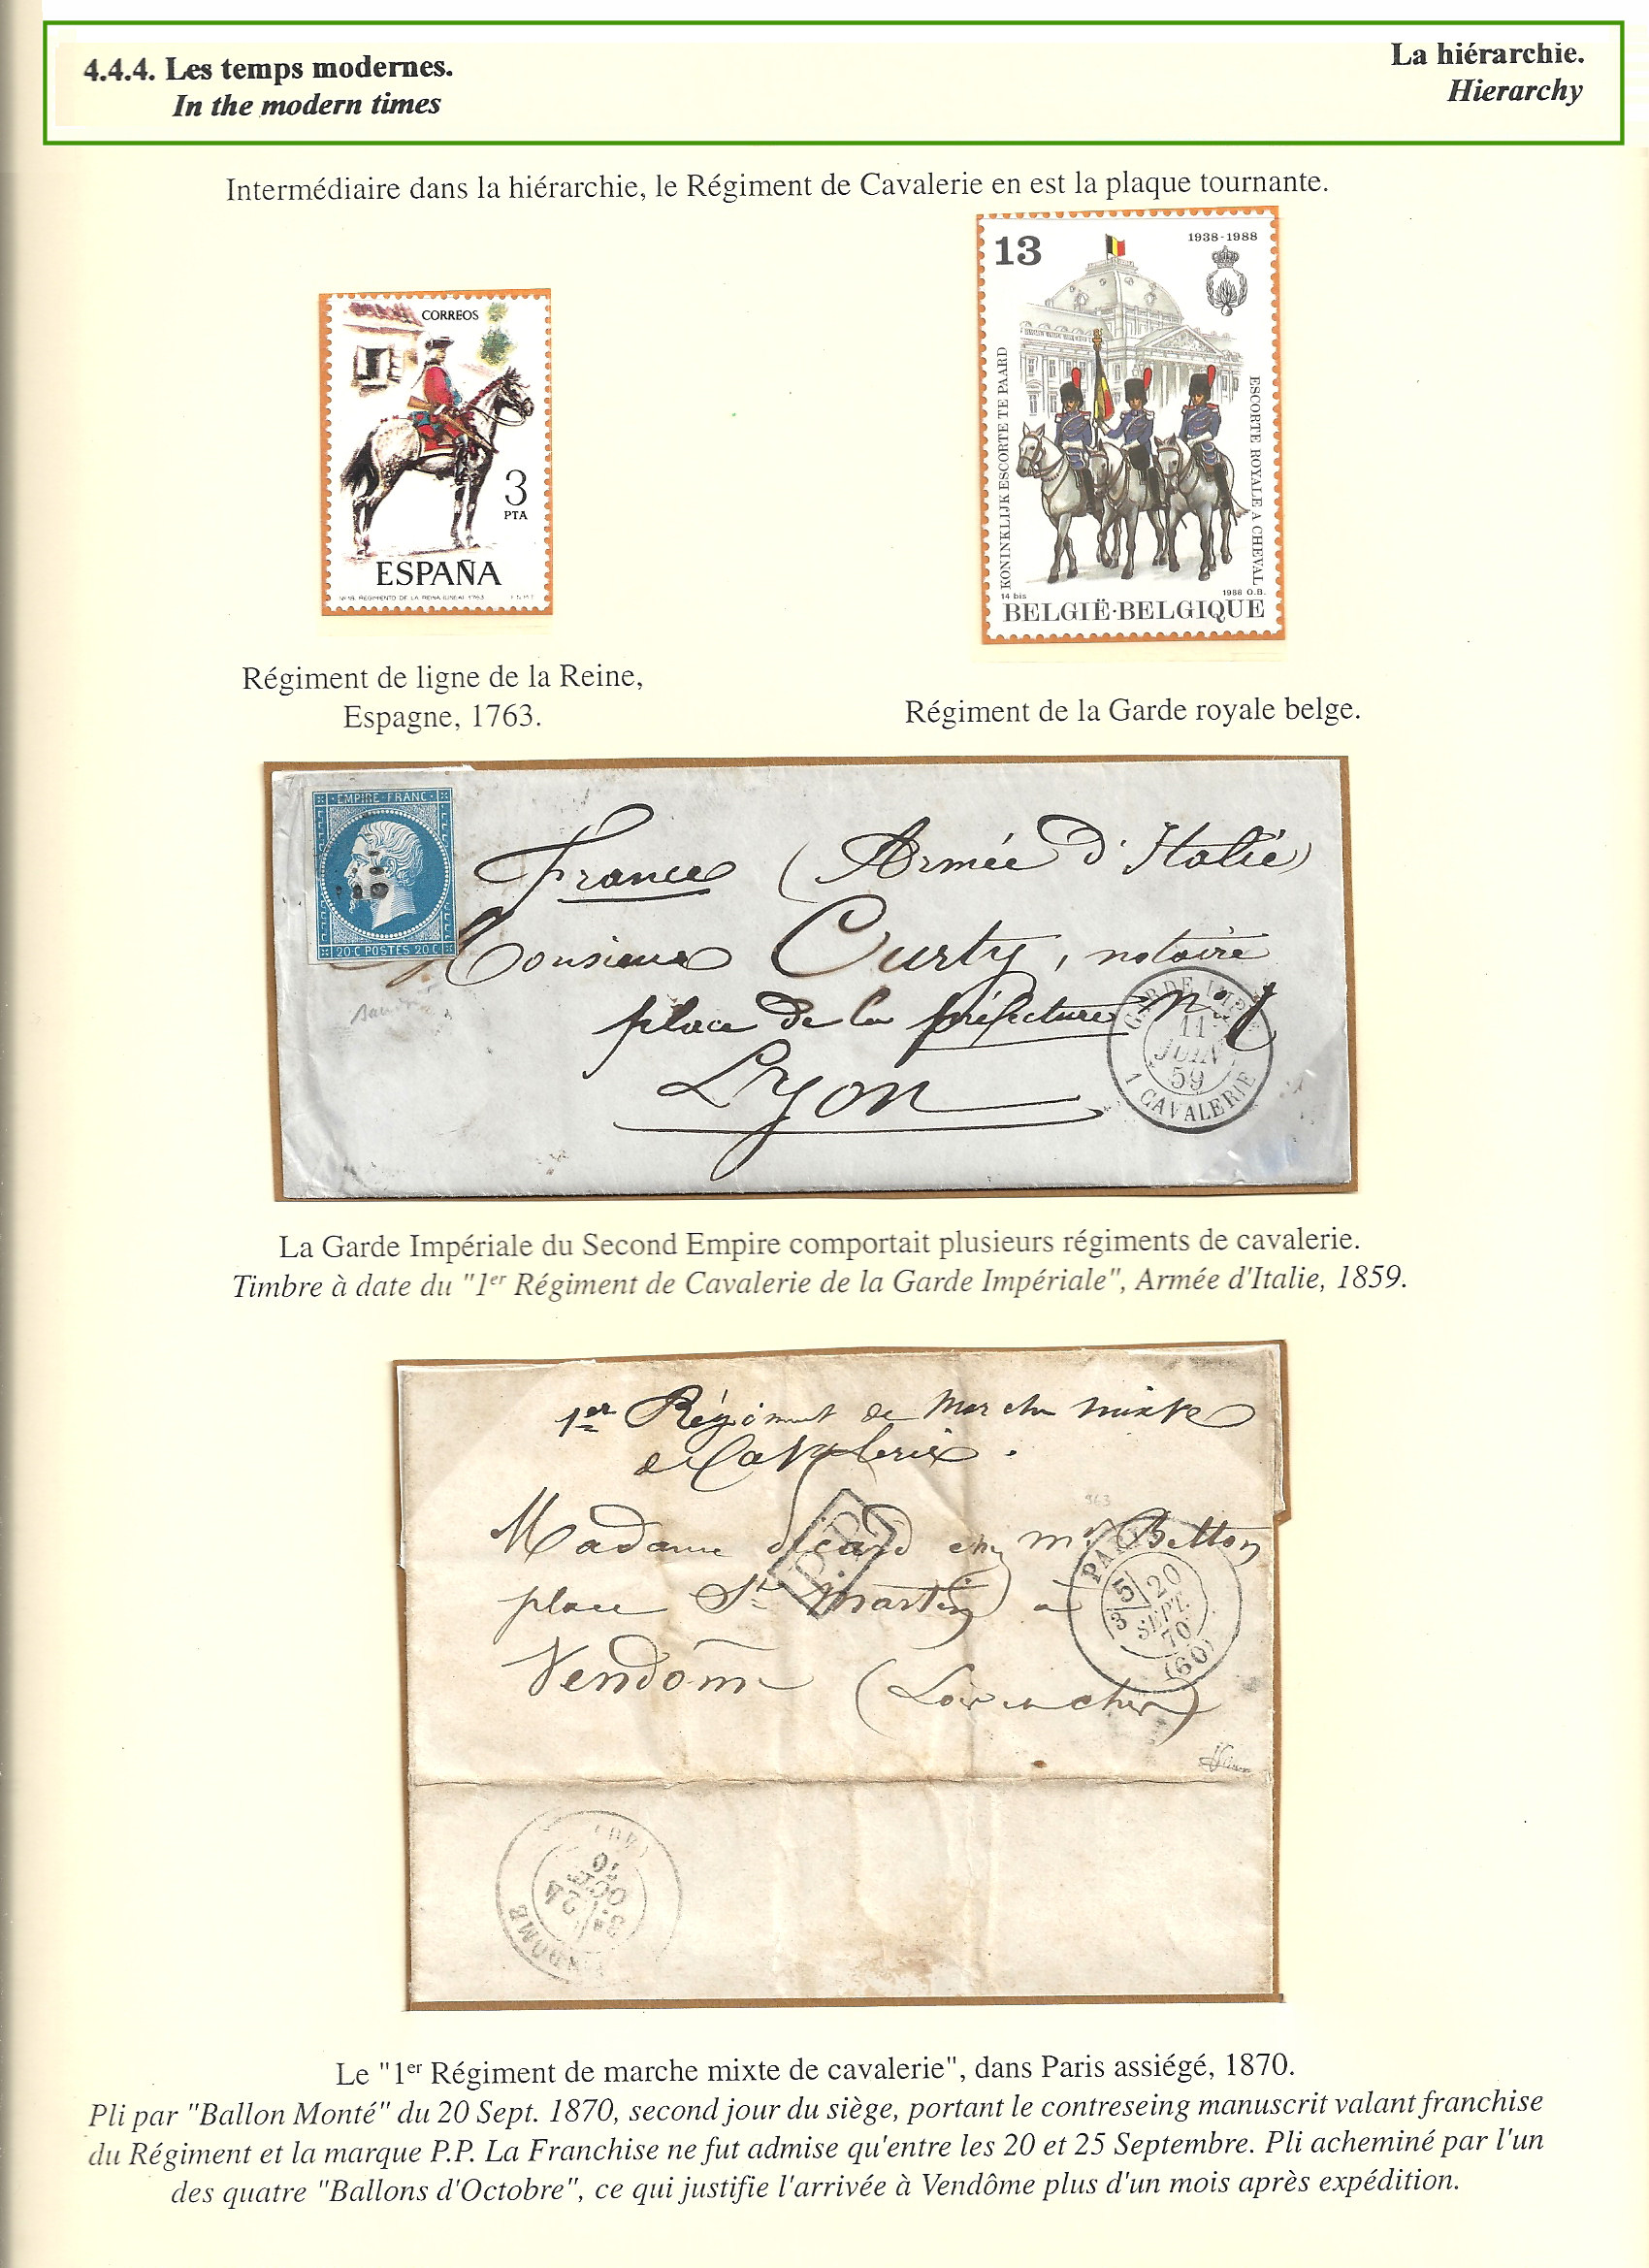 4.4.4. Les temps modernes.
In the modern times
La hiérarchie.
Hierarchy
Intermédiaire dans la hiérarchie, le Régiment de Cavalerie en est la plaque tournante.
CORREOS
3
PTA
ESPAÑA
13
1938-1988
KONINKLIJK ESCORTE TE PAARD
ESCORTE ROYALE A CHEVAL
14 bis
1988 O.B.
BELGIË-BELGIQUE
Régiment de ligne de la Reine,
Espagne, 1763.
Régiment de la Garde royale belge.
EMPIRE FRANC
20 C POSTES 20 C
France (Armée d'Italie)
Monsieur Curty, notaire
place de la préfecture N°
Lyon
GARDE IMP
11
JUIN
59
1 CAVALERIE
La Garde Impériale du Second Empire comportait plusieurs régiments de cavalerie.
Timbre à date du "1er Régiment de Cavalerie de la Garde Impériale", Armée d'Italie, 1859.
1er Régiment de Marche mixte
de Cavalerie.
963
Madame chez Mr Betton
place St Martin à
Vendôm
(Loir et cher)
P.P.
PA
5 20
3 SEPT.
70
(60)
24
OCT
70
Le "1er Régiment de marche mixte de cavalerie", dans Paris assiégé, 1870.
Pli par "Ballon Monté" du 20 Sept. 1870, second jour du siège, portant le contreseing manuscrit valant franchise
du Régiment et la marque P.P. La Franchise ne fut admise qu'entre les 20 et 25 Septembre. Pli acheminé par l'un
des quatre "Ballons d'Octobre", ce qui justifie l'arrivée à Vendôme plus d'un mois après expédition.